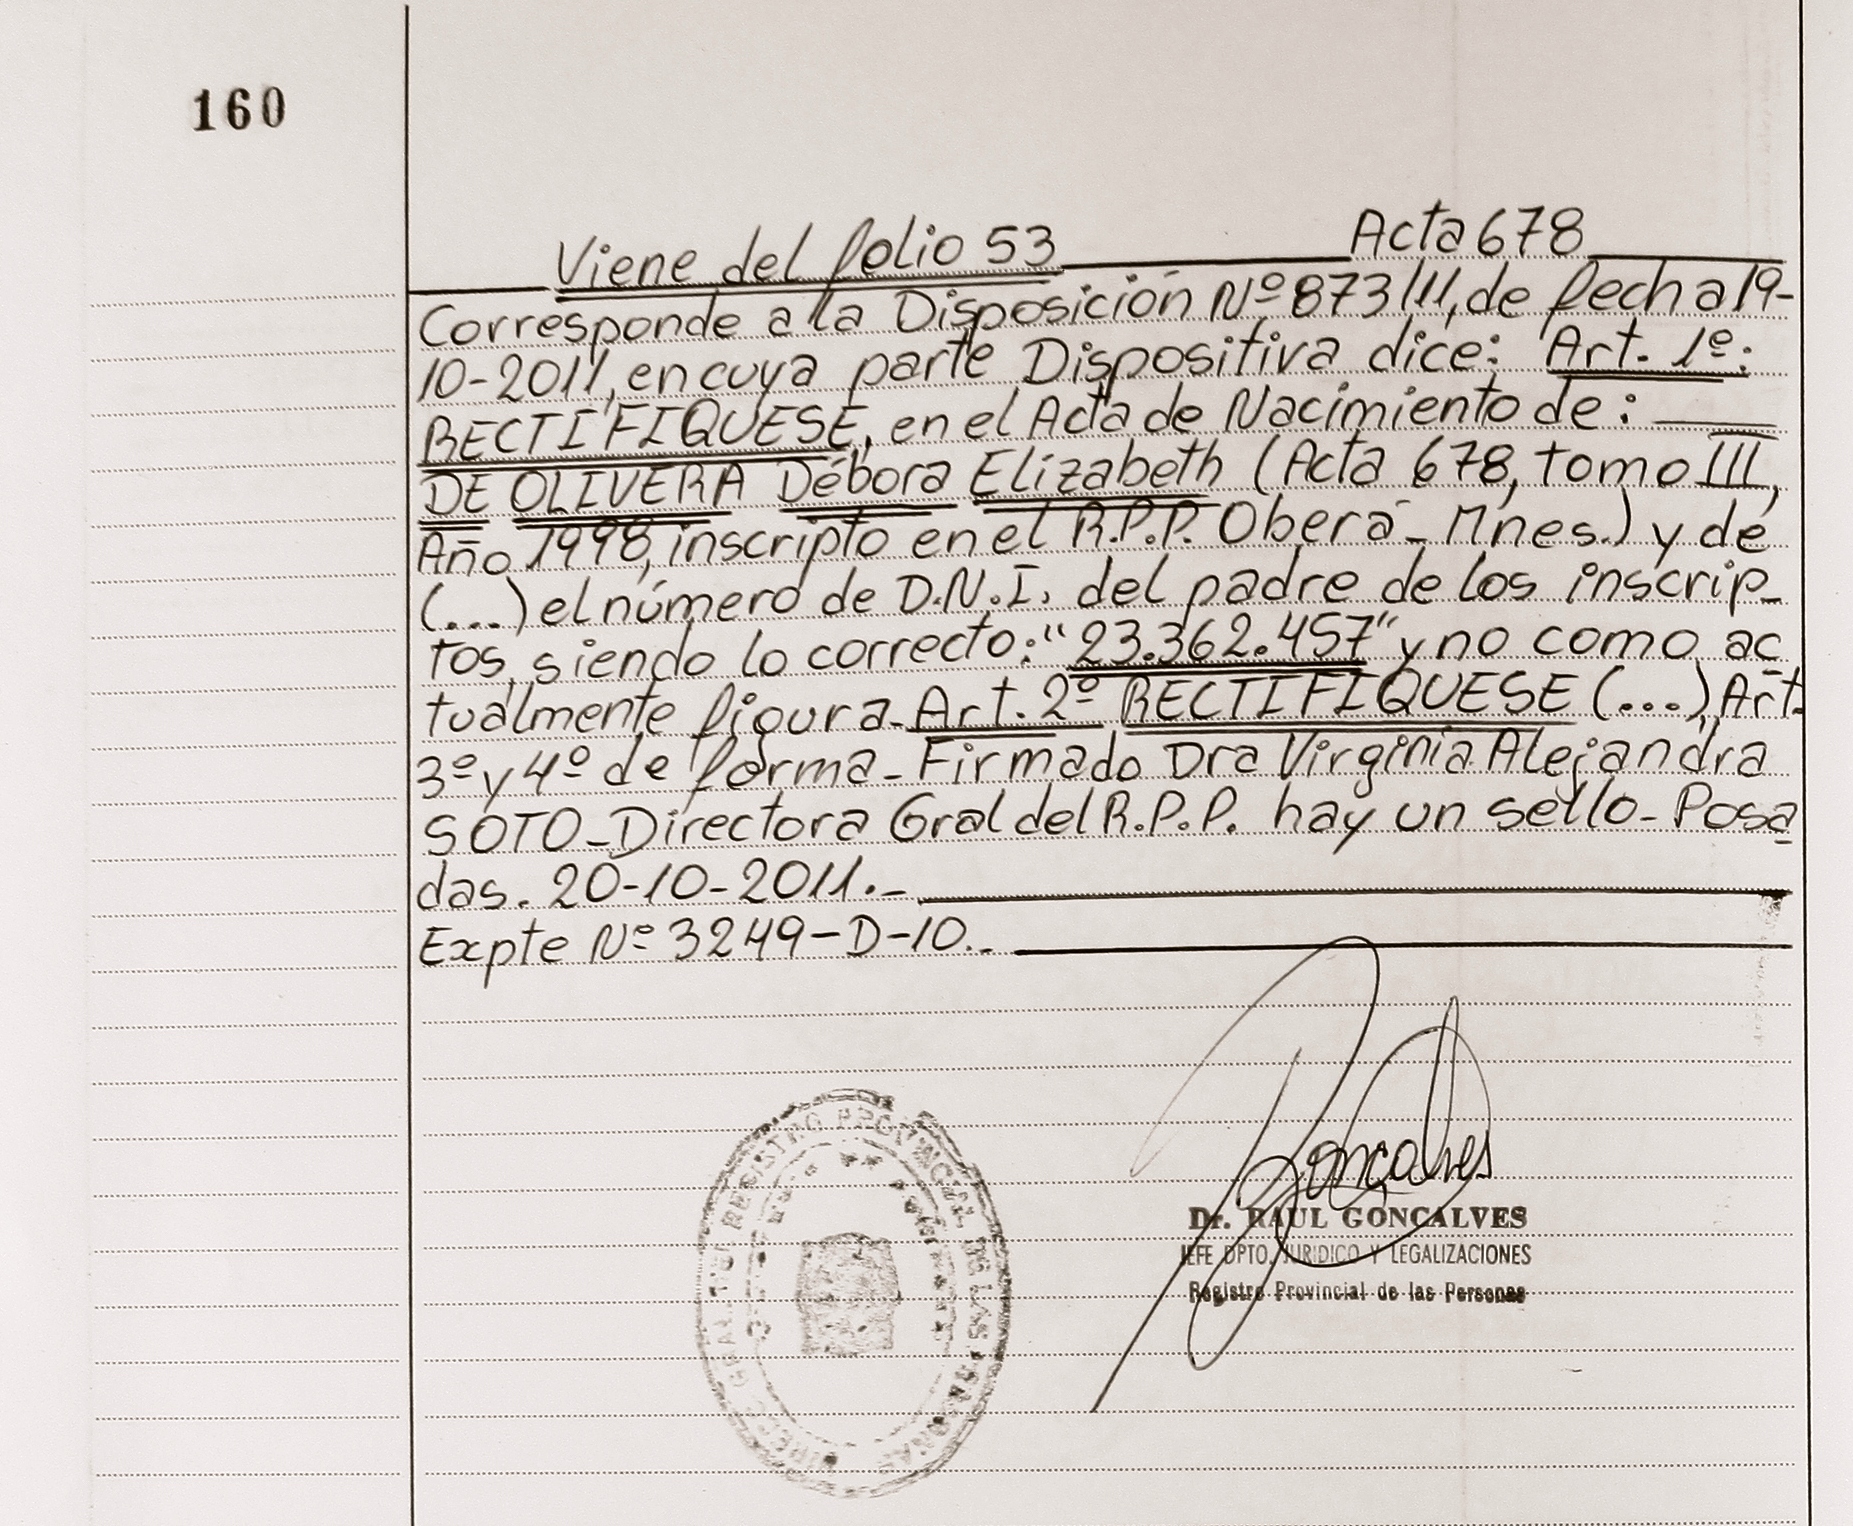 160
Viene del folio 53 Acta 678
Corresponde a la Disposición Nº 873/11, de fecha 19-
10-2011, en cuya parte Dispositiva dice: Art. 1º:
RECTIFIQUESE, en el Acta de Nacimiento de:
DE OLIVERA Débora Elizabeth (Acta 678, tomo III,
Año 1998, inscripto en el R.P.P. Oberá - Mnes.) y de
(...) el número de D.N.I. del padre de los inscrip-
tos, siendo lo correcto: "23.362.457" y no como ac
tualmente figura - Art. 2º RECTIFIQUESE (...), Art.
3º y 4º de forma - Firmado Dra Virginia Alejandra
SOTO - Directora Gral del R.P.P. hay un sello - Posa
das. 20-10-2011.-
Expte Nº 3249-D-10.-
Goncalves
Dr. RAUL GONCALVES
JEFE DPTO. JURIDICO Y LEGALIZACIONES
Registro Provincial de las Personas
REGISTRO PROVINCIAL DE LAS PERSONAS